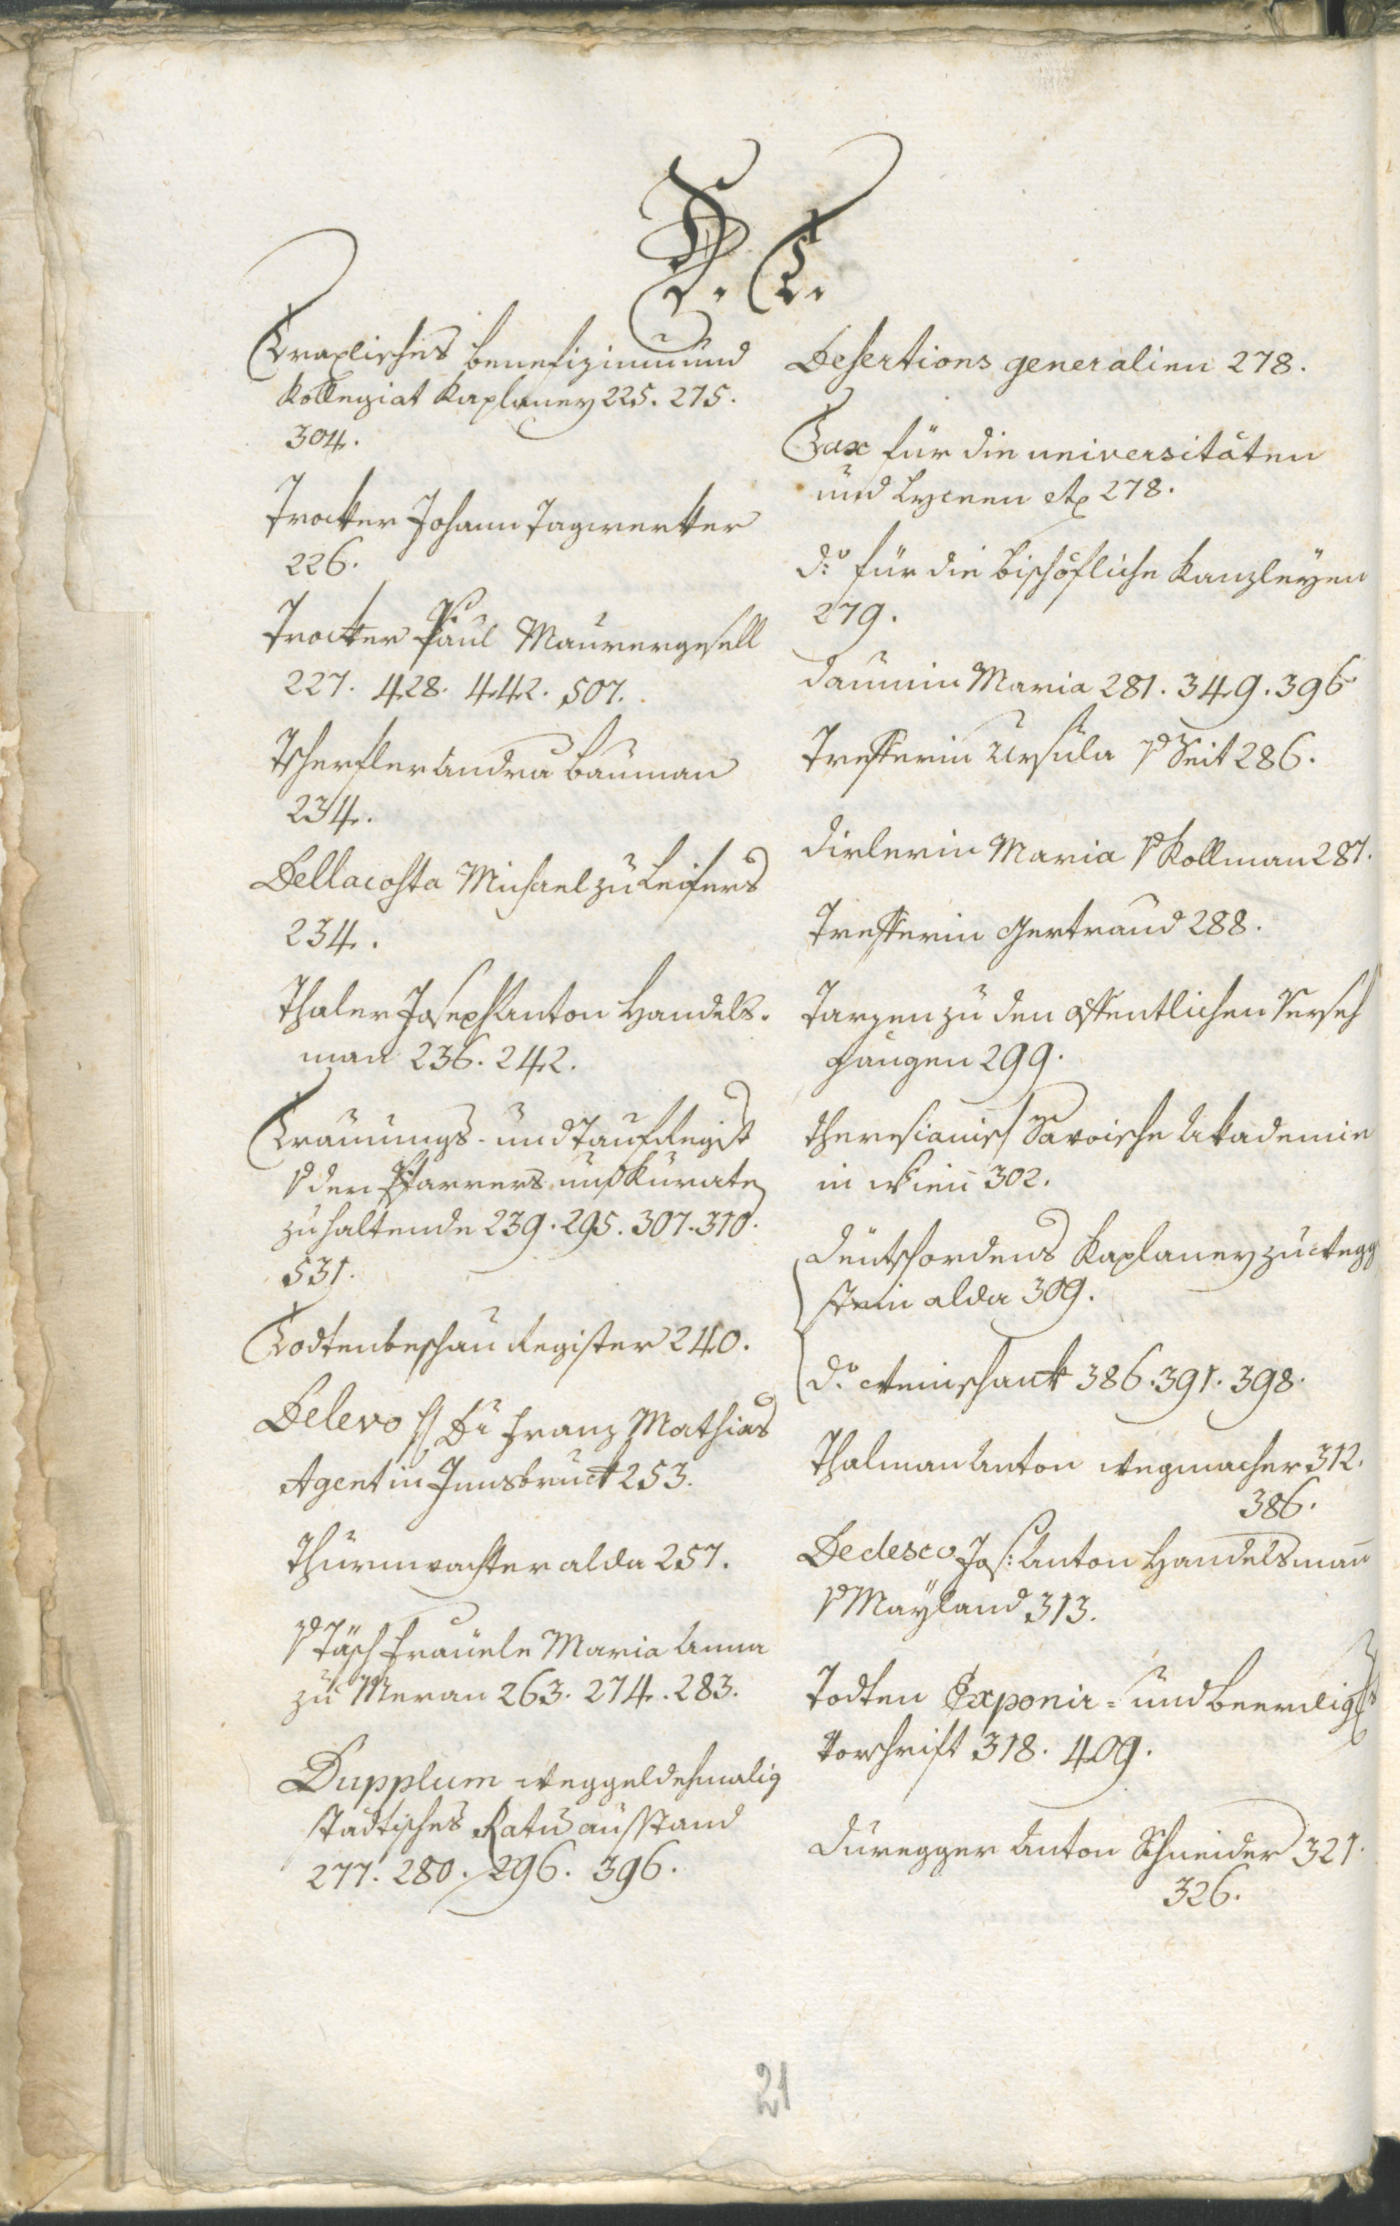 D. T.
Traxlisches benefizium und
Kollegiat Kaplaney 225. 275.
304.
Trocker Johann Tagwerker
226.
Trocker Paul Maurergesell
227. 428. 442. 507.
Andreà bauman
234.
Dellacosta Michael zu Leifers
234.
Thaler Joseph Anton Handels-
man 236. 242.
Trauungs- und Taufregist
den Pfarrers und Kuraten
zuhaltende 239. 295. 307. 310.
531.
Todtenbeschau Register 240.
Delevo Franz Mathias
Agent in Innsbruck 253.
Thurmwachter alda 257.
v Täsch Fräule Maria Anna
zu Meran 263. 274. 283.
Dupplum weggeld ehmalig
stadtisches Ratis ausstand
277. 280. 296. 396.
Desertions generalien 278.
Tax für die universitäten
und Lyceen etc 278.
do für die bischöfliche Kanzleyen
279.
Daumin Maria 281. 349. 396
Trefferin Ursula v Seit 286.
Dirlerin Maria v Kollman 287.
Trefferin Gertraud 288.
Tarzen zu den öffentlichen Verseh
gängen 299.
theresianisch Savoische Akademie
in Wien 302.
Deutschordens Kaplaney zu Wegg
stein alda 309.
do Weinschank 386. 391. 398.
Thalman Anton Wegmacher 312.
386.
Dedesco Jos: Anton Handelsman
v Mayland 313.
Todten Exponir- und beerdig
Vorschrift 318. 409.
Duregger Anton Schneider 321.
326.
21